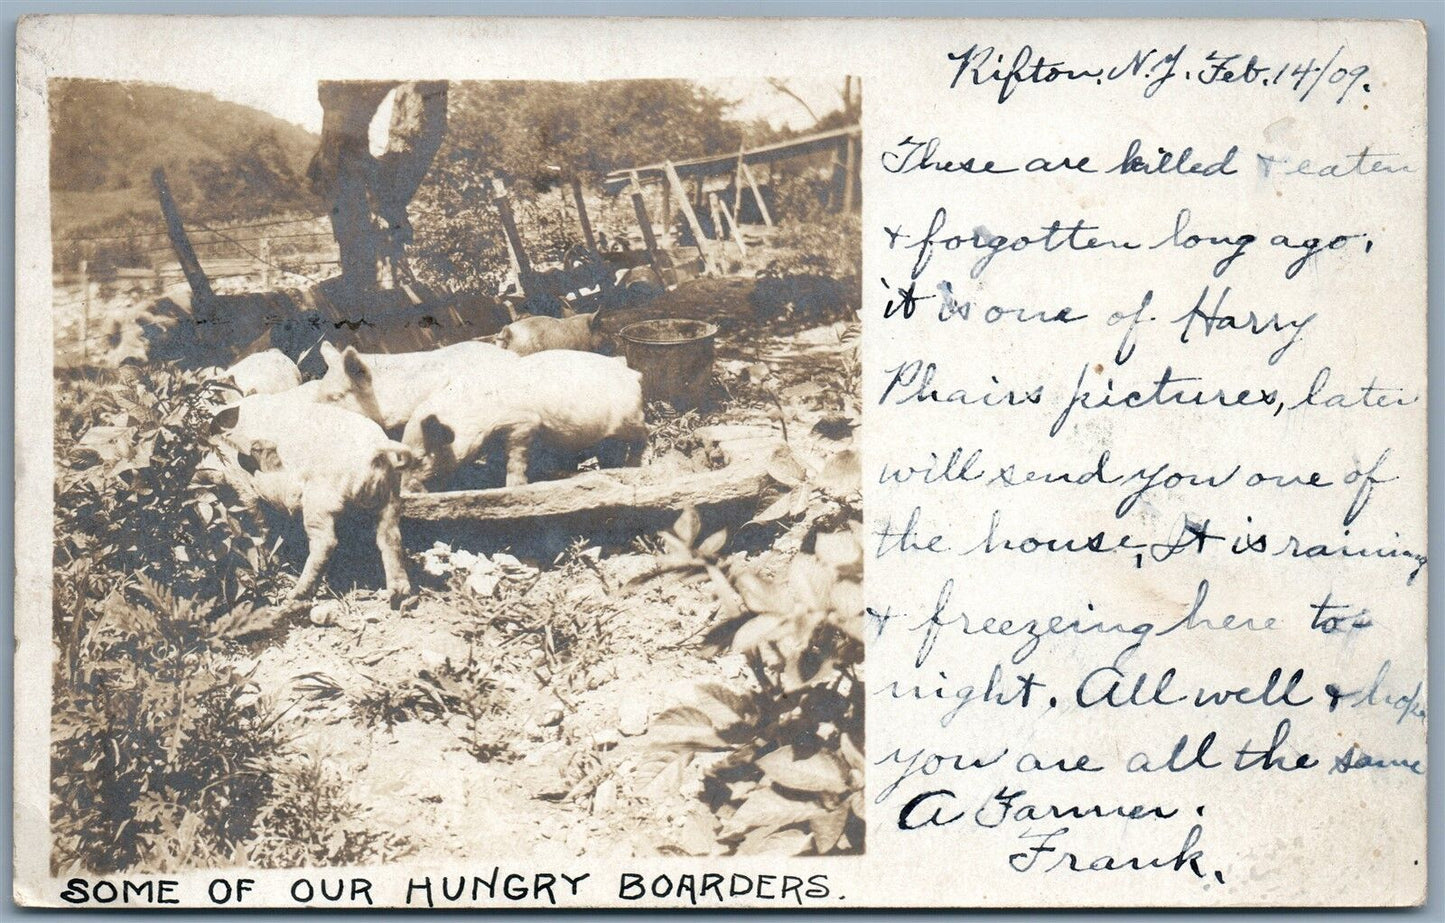 Rifton, N.Y. Feb. 14/09.
These are killed & eaten
& forgotten long ago.
it is one of Harry
Phairs pictures, later
will send you one of
the house, It is raining
& freezeing here to-
night. All well & hope
you are all the same
A Farmer.
Frank.
SOME OF OUR HUNGRY BOARDERS.